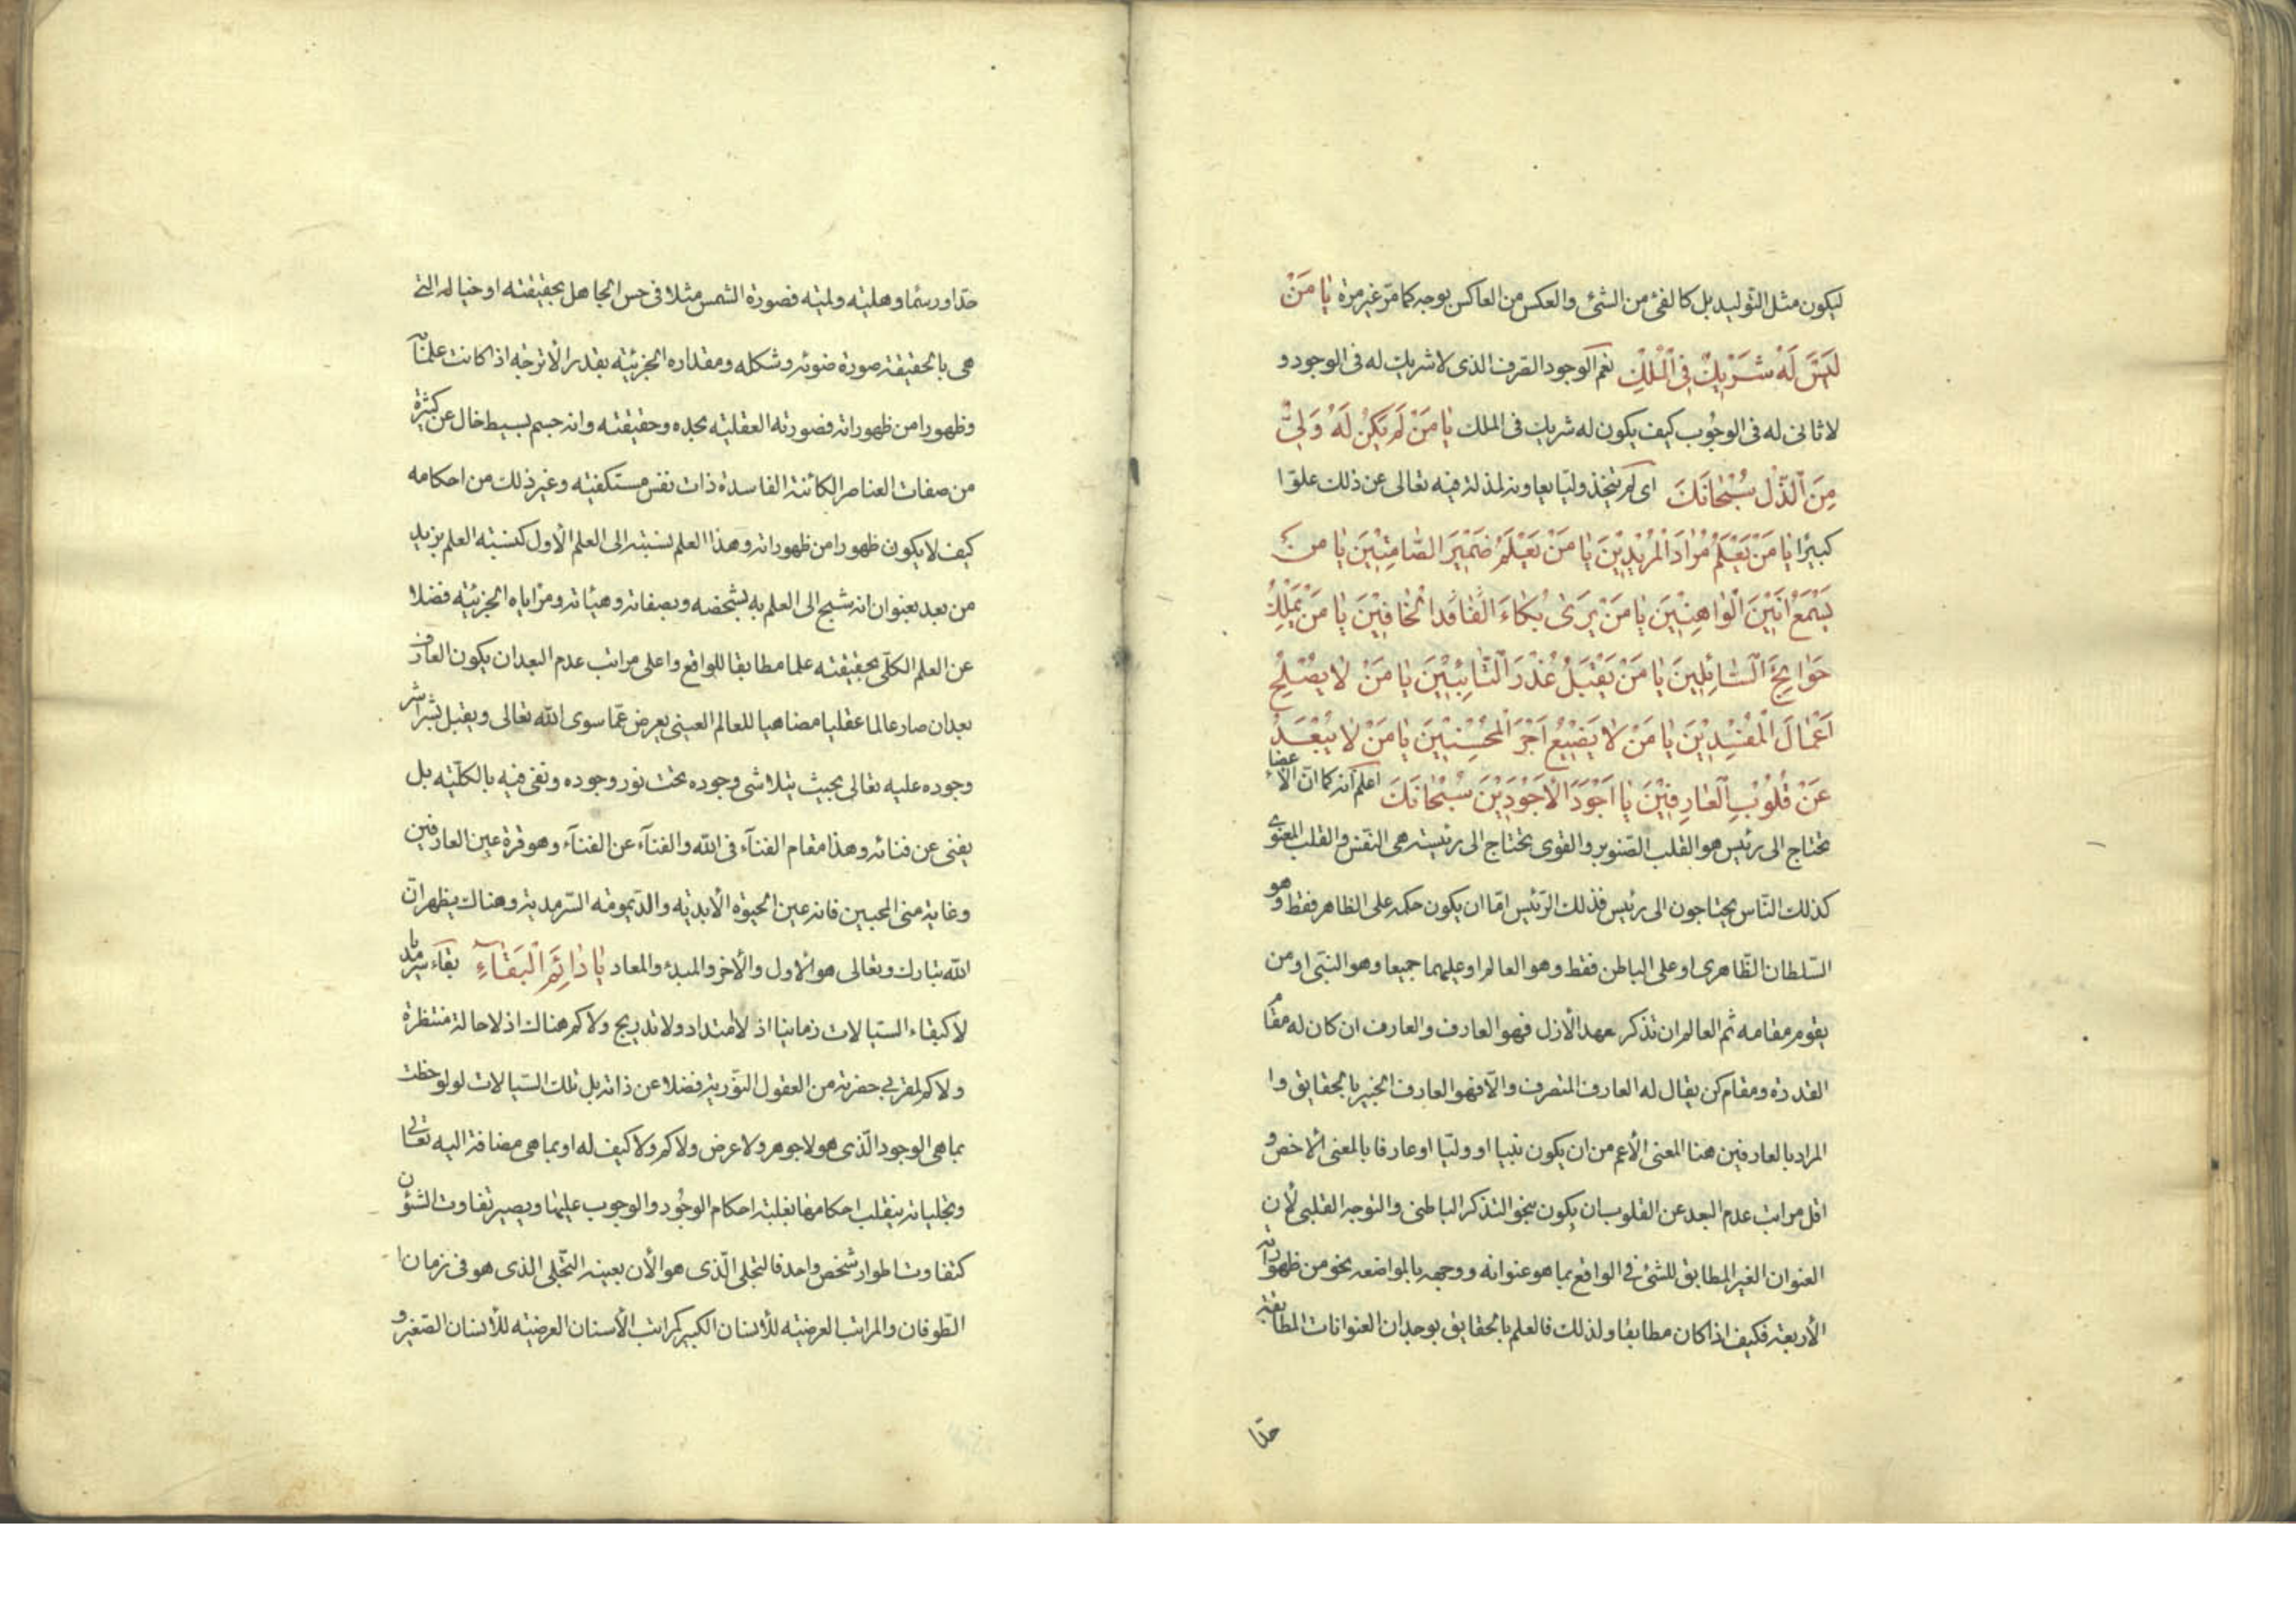 ليكون مثل التوليد بل كالفئ من الشئ والعكس من العاكس بوجه كما مرّ غير مرة يا مَنْ
لَيْسَ لَهُ شَرِيكٌ فِي الْمُلْكِ نعم الوجود الصّرف الذى لا شريك له فى الوجود و
لا ثانى له فى الوجُوب كيف يكون له شريك فى الملك يا مَنْ لَمْ يَكُنْ لَهُ وَلِيٌّ
مِنَ الذُّلِّ سُبْحَانَكَ اى لم يتخذ وليّا يعاونه لمذلة فيه تعالى عن ذلك علوّا
كبيرًا يا مَنْ يَعْلَمُ مُرادَ الْمُرِيدِينَ يا مَنْ يَعْلَمُ ضَمِيرَ الصَّامِتِينَ يا من
يَسْمَعُ اَنِينَ الْوَاهِنِينَ يا مَنْ يَرىٰ بُكاءَ الْخَائِفِينَ يا مَنْ يَمْلِكُ
حَوائِجَ السَّائِلِينَ يا مَنْ يَقْبَلُ عُذْرَ التَّائِبِينَ يا مَنْ لا يُصْلِحُ
اَعْمَالَ الْمُفْسِدِينَ يا مَنْ لا يُضِيعُ اَجْرَ الْمُحْسِنِينَ يا مَنْ لا يَبْعُدُ
عَنْ قُلُوبِ الْعَارِفِينَ يا اَجْوَدَ الْاَجْوَدِينَ سُبْحَانَكَ اعلم انه كما انّ الأعضاء
تحتاج الى رئيس هو القلب الصّنوبرى والقوى تحتاج الى رئيسة هى النّفس والقلب المعنوى
كذلك النّاس يحتاجون الى رئيس فذلك الرّئيس امّا ان يكون حكمه على الظاهر فقط وهو
السّلطان الظّاهرى او على الباطن فقط وهو العالم او عليهما جميعا وهو النبىّ او من
يقوم مقامه ثم العالم ان تذكر عهد الأزل فهو العارف والعارف ان كان له مقام
القدرة ومقام كن يقال له العارف المتصرف والّا فهو العارف الخبير بالحقايق وا
المراد بالعارفين هنا المعنى الأعم من ان يكون نبيا او وليّا او عارفا بالمعنى الأخص و
اقل مراتب عدم البعد عن القلوب ان يكون بنحو التذكر الباطنى والتوجه القلبى لأن
العنوان الغير المطابق للشئ فى الواقع بما هو عنوانه ووجهه بالمواضعه نحو من ظهوراته
الأربعة فكيف اذا كان مطابقا ولذلك فالعلم بالحقايق بوجدان العنوانات المطابقة
حدّا
حدّا ورسمًا وهليته ولميّته فصورة الشمس مثلا فى حس الجاهل بحقيقته او خياله التى
هى بالحقيقة صورة ضوئه وشكله ومقداره الجزئيّه بقدر الأترجّه اذا كانت علما به
وظهورا من ظهوراته فصورته العقليّه بحده وحقيقته وانه جسم بسيط خال عن كثرة
من صفات العناصر الكائنة الفاسدة ذات نفس مستكفية وغير ذلك من احكامه
كيف لا يكون ظهورا من ظهوراته وهذا العلم نسبته الى العلم الأول كنسبة العلم بزيد
من بعد بعنوان انه شبح الى العلم به بشخصه وبصفاته وهيئاته ومزاياه الجزئيّة فضلا
عن العلم الكلّى بحقيقته علما مطابقا للواقع واعلى مراتب عدم البعد ان يكون العارف
بعد ان صار عالما عقليا مضاهيا للعالم العينى يعرض عمّا سوى الله تعالى ويقبل بشراشر
وجوده عليه تعالى بحيث يتلاشى وجوده تحت نور وجوده ونفى فيه بالكلّية بل
يفنى عن فنائه وهذا مقام الفنآء فى الله والفنآء عن الفنآء وهو قرة عين العارفين
وغاية منى المحبين فانه عين الحيوة الأبديّه والدّيموميّه السّرمدية وهناك يظهر انّ
الله تبارك وتعالى هو الاول والأخر والمبدء والمعاد يا دَائِمَ الْبَقاءِ بقآء سرمديا
لا كبقاء السّيالات زمانيا اذ لا امتداد ولا تدريج ولا كم هناك اذ لا حالة منتظرة
ولا كم لمقربى حضرته من العقول النّورية فضلا عن ذاته بل تلك السّيالات لو لوحظت
بما هى الوجود الّذى هو لا جوهر ولا عرض ولا كم ولا كيف له او بما هى مضافة اليه تعالى
وتجلياته ينقلب احكامها بغلبة احكام الوجُود والوجوب عليها ويصير تفاوت الشئون
كتفاوت اطوار شخص واحد فالتجلى الّذى هو الأن بعينه التّجلى الذى هو فى زمان
الطّوفان والمراتب العرضيّه للأنسان الكبير كمراتب الأسنان العرضيّه للأنسان الصّغير و